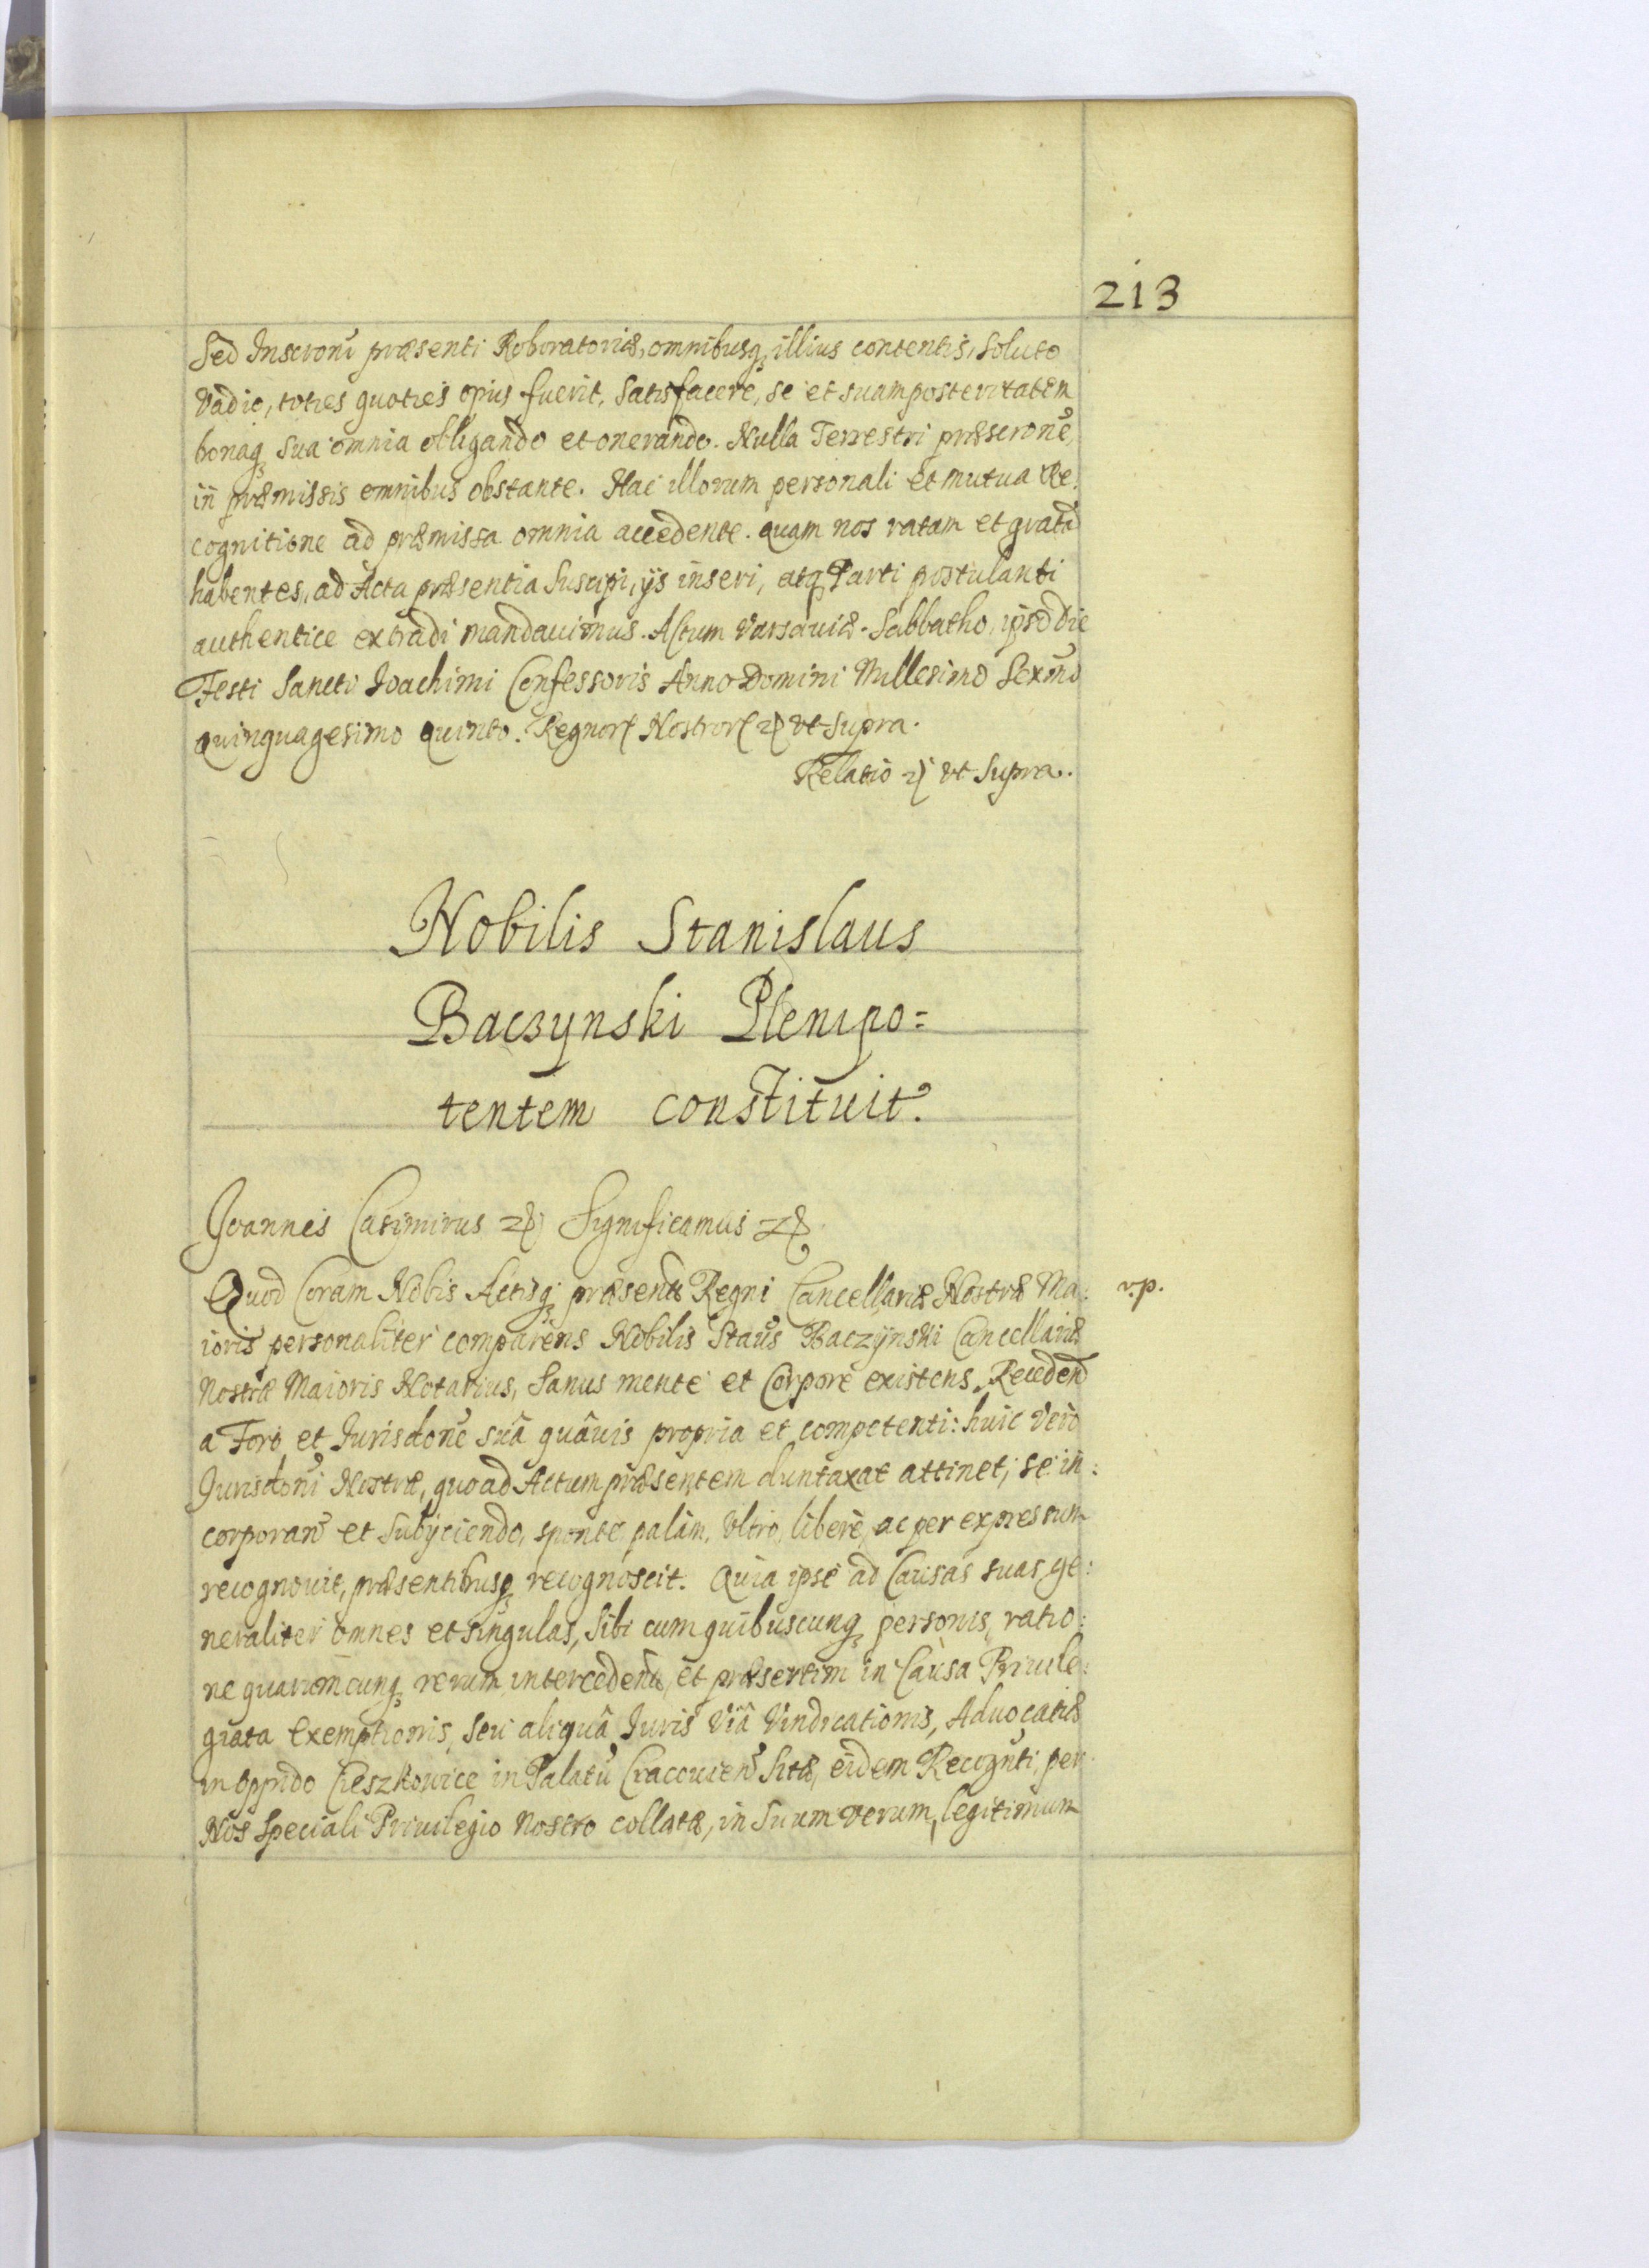 213
Sed Inscroni præsenti Roboratoriæ, omnibusq illius contentis, soluto
Vadio, toties quoties opus fuerit, satisfacere, se et suam posteritatem
bonaq sua omnia obligando et onerando. Nulla Terrestri præscrone,
in præmissis omnibus obstante. Hac illorum personali et mutua Re:
cognitione ad præmissa omnia accedente. quam nos ratam et gratã
habentes, ad Acta præsentia suscipi, ijs inseri, atq Parti postulanti
authentice extradi mandauimus. Actum Varsauiæ. Sabbatho, ipso die
Festi Sancti Joachimi Confessoris Anno Domini Millesimo Sexmo
quinquagesimo quinto. Regnor Nostror & vt supra.
Relatio & vt supra.
Nobilis Stanislaus
Baczynski Plenipo=
tentem constituit.
Joannes Casimirus & Significamus &
Quod Coram Nobis Actisq præsent Regni Cancellariæ Nostræ Ma: v.p.
ioris personaliter comparens Nobilis Staus Baczÿnski Cancellariæ
Nostræ Maioris Notarius, Sanus mente et Corpore existens, Receden
a Foro et Jurisdone suâ quâuis propria et competenti: huic vero
Jurisdoni Nostræ, quoad Actum præsentem duntaxat attinet, se in:
corporan et Subijciendo, sponte palàm, Vltro, liberè, ac per expressum
recognouit, præsentibusq recognoscit. Quia ipse ad Causas suas ge:
neraliter omnes et singulas, sibi cum quibuscunq personis, ratio:
ne quarumcunq rerum intercedent, et præsertim in Causa Priuile:
giata Exemptionis, seu aliquâ Juris viâ Vindicationis, Aduocatiæ
in Oppido Cieszkowice in Palatu Cracouien Sitæ, eidem Recognti, per
Nos Speciali Priuilegio Nostro collatæ, in Suum verum, legitimum